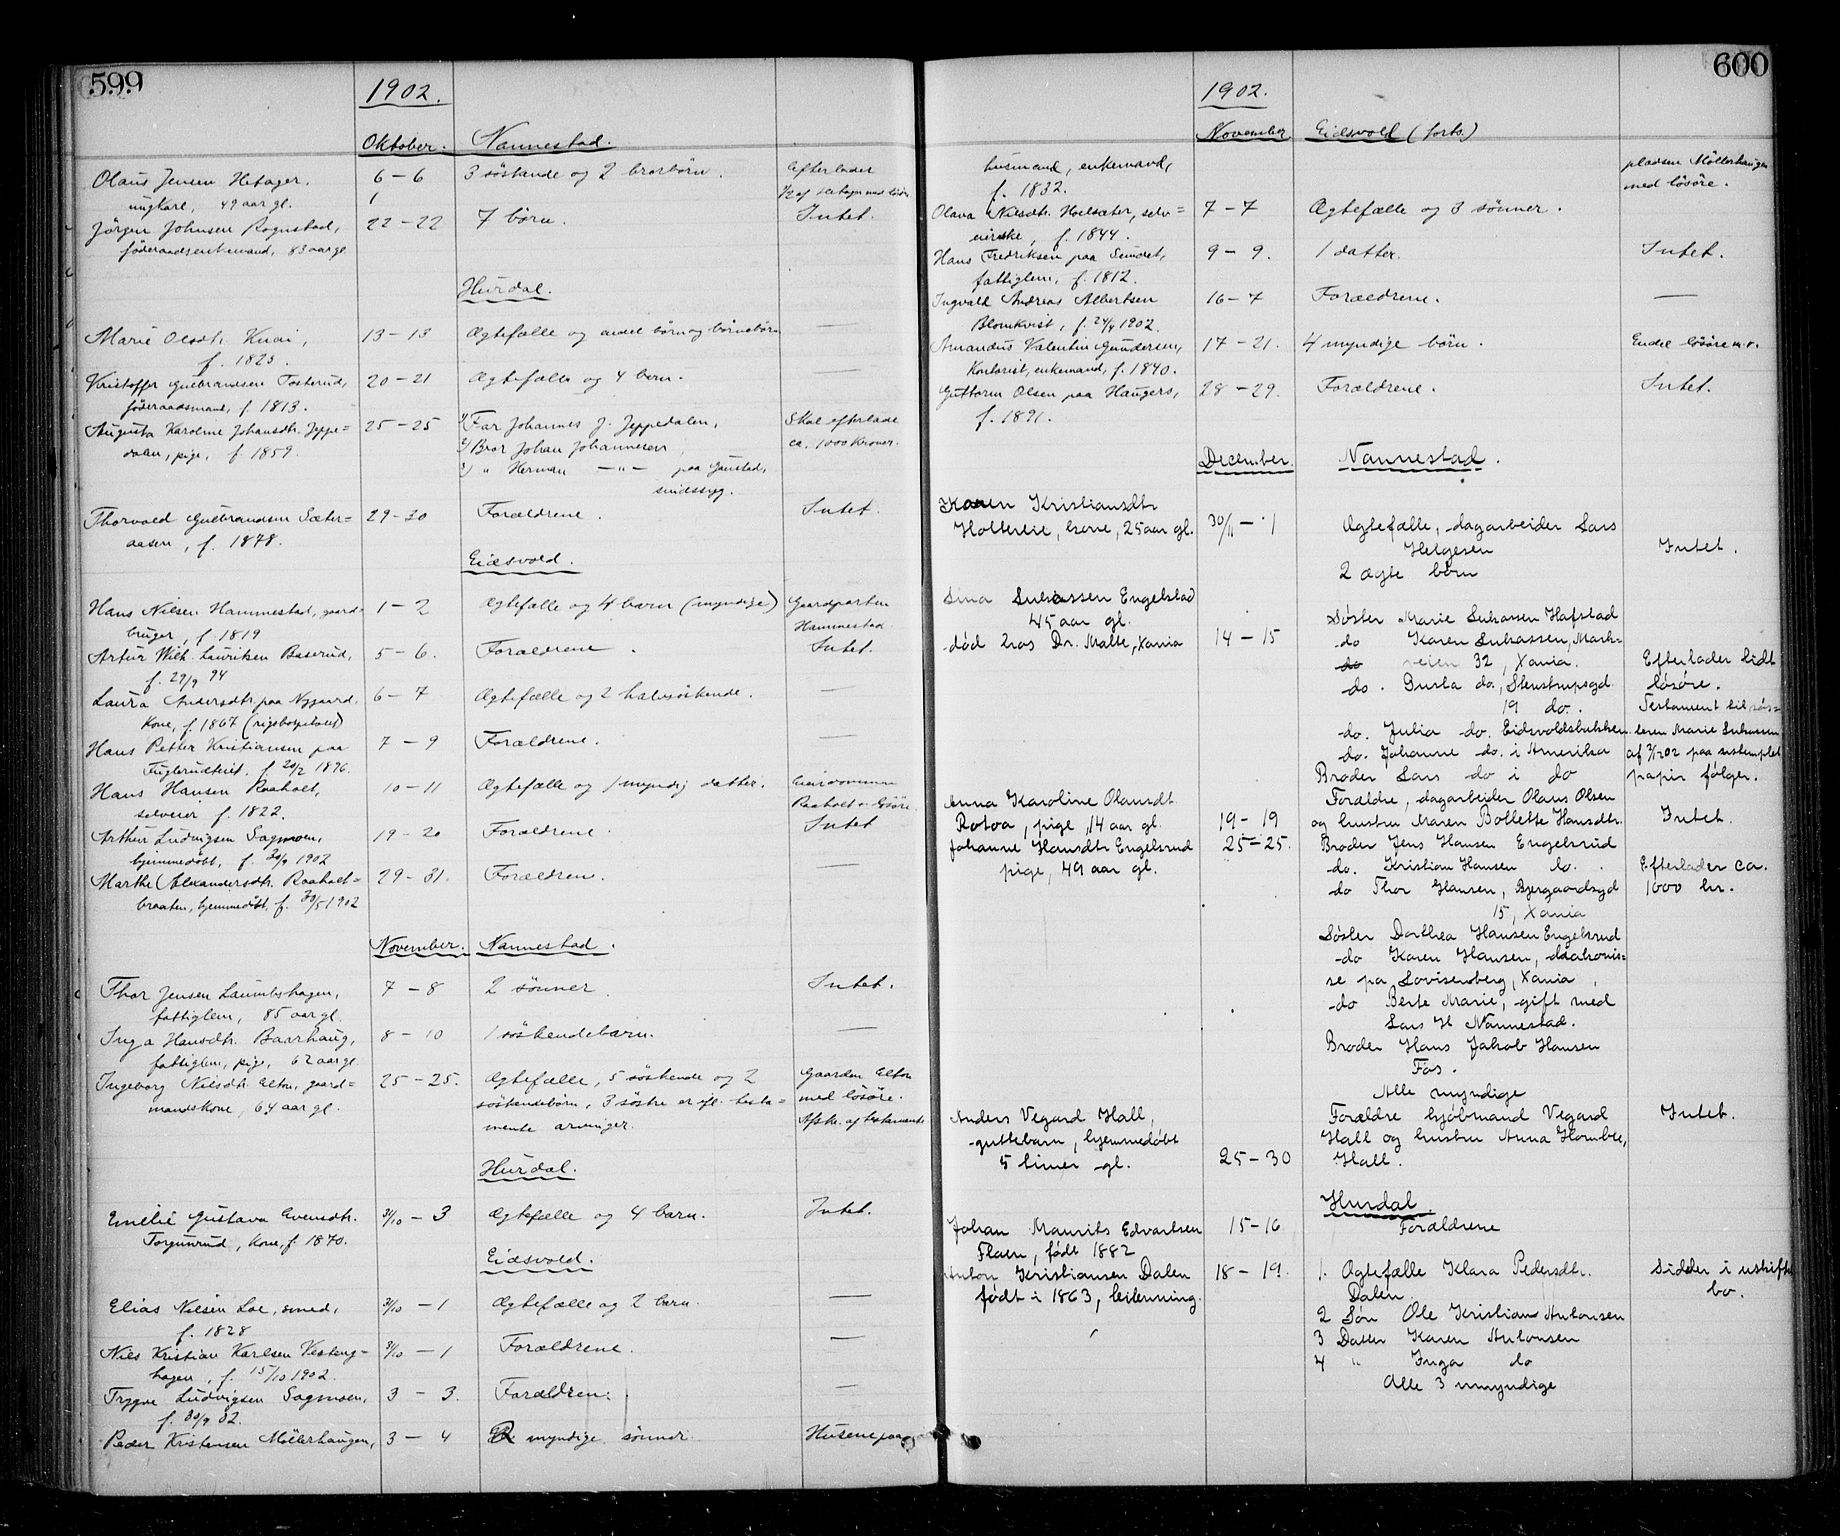 599
1902.
Oktober. Nannestad.
Olaus Jensen Hetager, 6 – 6 3 söskende og 2 brorbörn. Efterlader
ungkarl, 49 aar gl. 1/2 af Hetager med lösöre
Jörgen Johnsen Rognstad, 22 – 22 7 börn. Intet.
föderaadsenkemand, 83 aar gl.
Hurdal.
Marie Olsdtr. Knai, 13 – 13 Ægtefælle og endel börn og börnebörn —
f. 1823.
Kristoffer Gulbrandsen Tosterud, 20 – 21 Ægtefælle og 4 barn. —
föderaadsmand, f. 1813.
Augusta Karoline Johansdtr. Jeppe= 25 – 25 1/ Far Johannes J. Jeppedalen, Skal efterlade
dalen, pige, f. 1859. 2/ Bror Johan Johannesen, ca. 1000 kroner.
3/ " Herman —"— paa Gaustad,
sindssyg.
Thorvald Gulbrandsen Sæter= 29 – 30 Forældrene. Intet.
aasen, f. 1878.
Eidsvold.
Hans Nilsen Hammestad, gaard= 1 – 2 Ægtefælle og 4 barn (myndige) Gaardparten
bruger, f. 1819 Hammestad.
Artur Wilh. Lauritsen Baserud, 5 – 6. Forældrene. Intet.
f. 29/9 94
Laura Andersdtr. paa Nygaard, 6 – 7 Ægtefælle og 2 halvsöskende. —
Kone, f. 1867 (rigshospitalet)
Hans Petter Kristiansen paa 7 – 9 Forældrene. —
Fuglerudteiet, f. 20/2 1896.
Hans Hansen Raaholt, 10 – 11 Ægtefælle og 1 myndig datter. Eiendommen
selveier f. 1822. Raaholt m. lösöre
Arthur Ludvigsen Sagmoen, 19 – 20 Forældrene. Intet
hjemmedöbt, f. 30/9 1902
Marthe Alexandersdtr. Raaholt= 29 – 31. Forældren. —
braaten, hjemmedöbt, f. 30/5 1902
November. Nannestad.
Thor Jensen Laumbshagen, 7 – 8 2 sönner. Intet.
fattiglem, 85 aar gl.
Inga Hansdtr. Baarhaug, 8 – 10 1 söskendebarn. —
fattiglem, pige, 62 aar gl.
Ingeborg Nilsdtr. Elton, gaard= 25 – 25. Ægtefælle, 5 söskende og 2 Gaarden Elton
mandskone, 64 aar gl. söskendebörn, 3 söstre er efl. testa= med lösöre.
mente arvinger. Afskr. af testamente
Hurdal.
Emelie Gustava Evensdtr. 31/10 – 3 Ægtefælle og 4 barn. Intet.
Torgunrud, kone, f. 1870.
Eidsvold.
Elias Nilsen Loe, smed, 31/10 – 1 Ægtefælle og 2 barn. —
f. 1828
Nils Kristian Karlsen Vesteng= 31/10 – 1 Forældrene. —
hagen, f. 15/10 1902.
Trygve Ludvigsen Sagmoen, 3 – 3. Forældren. —
f. 30/9 02.
Peder Kristensen Möllerhaugen, 3 – 4 2 myndige sönner. Husene paa
600
1902.
November Eidsvold (forts.)
husmand, enkemand, pladsen Möllerhaugen
f. 1832. med lösöre.
Olava Nilsdtr. Hoelsæter, selv= 7 – 7 Ægtefælle og 3 sönner.
eierske, f. 1844.
Hans Fredriksen paa Sundet, 9 – 9. 1 datter. Intet.
fattiglem, f. 1812.
Ingvald Andreas Albertsen 16 – 7 Forældrene. —
Blomkvist, f. 24/9 1902.
Amandus Valentin Gundersen, 17 – 21. 4 myndige börn. Endel lösöre m.v.
kontorist, enkemand, f. 1840.
Guttorm Olsen paa Haugers, 28 – 29. Forældrene. Intet.
f. 1891.
December. Nannestad.
Karen Kristiansdtr
Holtereie, kone, 25 aar gl. 30/11 – 1 Ægtefælle, dagarbeider Lars
Helgesen Intet.
2 ægte börn
Lina Lukassen Engelstad
45 aar gl. Søster Marie Lukassen Hafstad
død hos Dr. Malte, Xania 14 – 15 do Karen Lukassen, Mark-
do veien 32, Xania. Efterlader lidt
do. Gusta do., Stenstrupsgd. løsøre.
19 do. Testament til søs=
do. Julia do. Eidsvoldsbakken teren Marie Lukassen
do. Johanne do. i Amerika af 3/1202 paa ustemplet
Broder Lars do i do papir følger.
Anna Karoline Olausdt. Forældre, dagarbeider Olaus Olsen
Rotva, pige, 14 aar gl. 19 – 19 og hustru Maren Bollette Hansdtr. Intet.
Johanne Hansdtr Engelsrud 25 – 25. Broder Jens Hansen Engelsrud
pige, 49 aar gl. do. Kristian Hansen do. Efterlader ca.
do Thor Hansen, Bjergaardsgd 1000 kr.
15, Xania
Søster Dorthea Hansen Engelsrud
do Karen Hansen, diakonis=
se pa Lovisenberg, Xania,
do Berte Marie, gift med
Lars H Nannestad.
Broder Hans Jakob Hansen
Fos.
Alle myndige
Anders Vegard Hall, Forældre kjøbmand Vegard Intet.
guttebarn, hjemmedøbt Hall og hustru Anna Hornbæ,
5 timer gl. 25 – 30 Hall.
Hurdal.
Johan Maurits Edvartsen 15 – 16 Forældrene
Flaen, født 1882
Anton Kristiansen Dalen 18 – 19. 1. Ægtefælle Klara Pedersdtr. Sidder i uskifte
født i 1863, leilænning. Dalen. bo.
2 Søn Ole Kristian Antonsen
3 Datter Karen Antonsen
4 " Inga do
Alle 3 umyndige